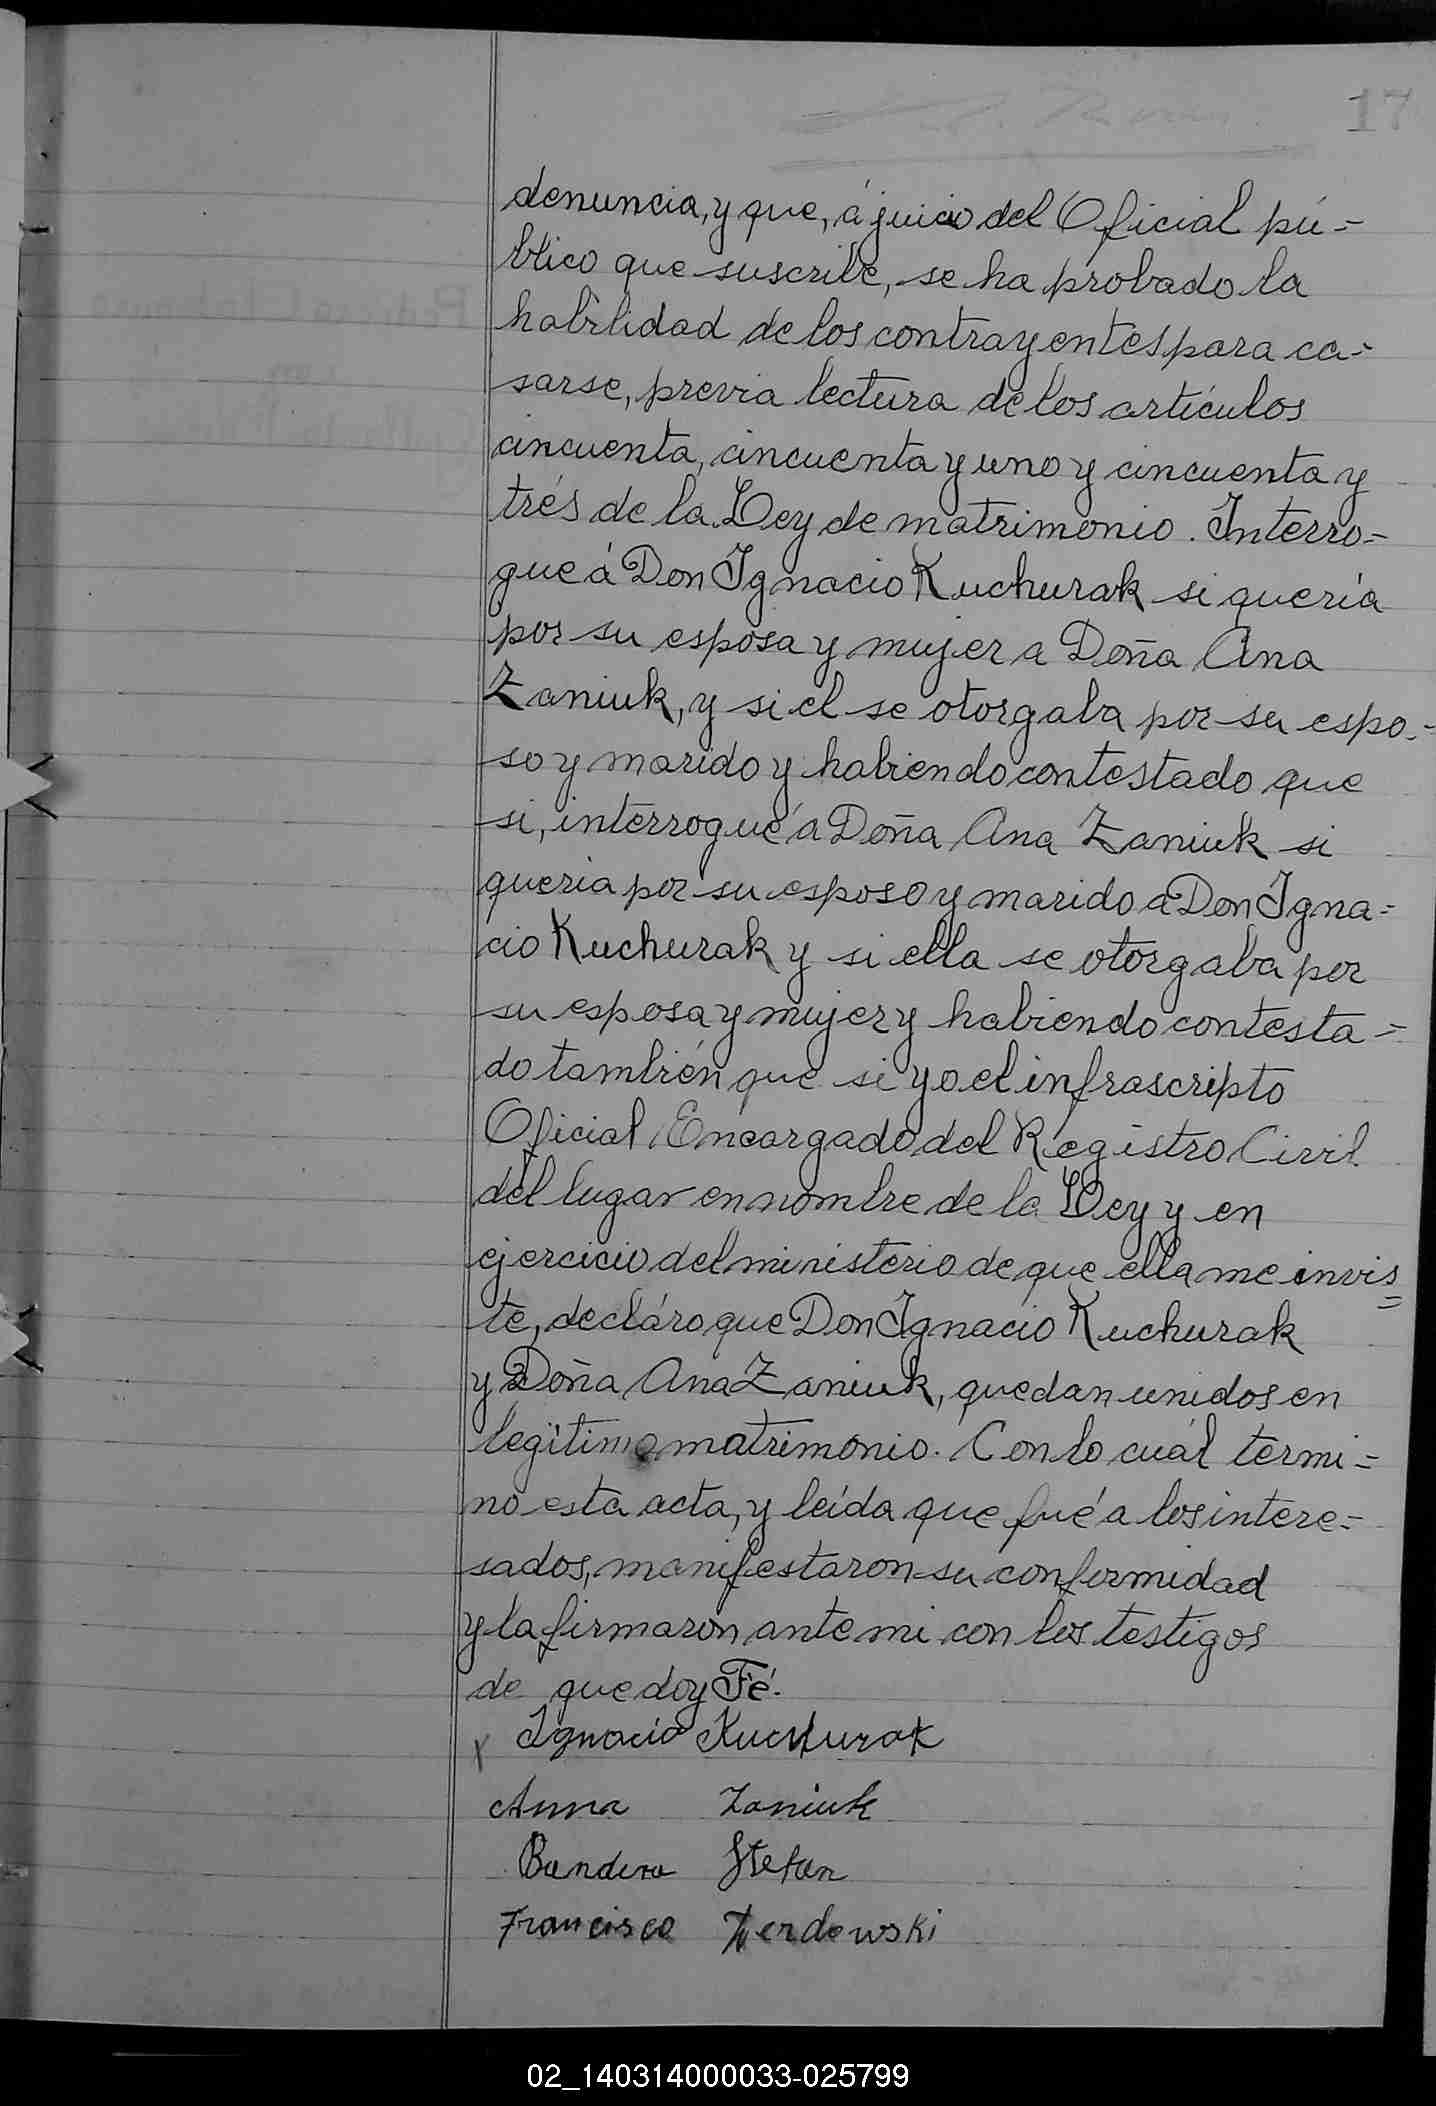 17
denuncia, y que, á juicio del Oficial pú=
blico que suscribe, se ha probado la
habilidad de los contrayentes para ca=
sarse, previa lectura de los artículos
cincuenta, cincuenta y uno y cincuenta y
trés de la Ley de matrimonio. Interro=
gue á Don Ignacio Kuchurak si quería
por su esposa y mujer a Doña Ana
Zaniuk, y si el se otorgaba por su espo=
so y marido y habiendo contestado que
si, interrogué a Doña Ana Zaniuk si
queria por su esposo y marido a Don Igna=
cio Kuchurak y si ella se otorgaba por
su esposa y mujer y habiendo contesta=
do también que si yo el infrascripto
Oficial Encargado del Registro Civil
del lugar en nombre de la Ley y en
ejercicio del ministerio de que ella me invis=
te, decláro que Don Ignacio Kuchurak
y Doña Ana Zaniuk, quedan unidos en
legítimo matrimonio. Con lo cuál termi=
no esta acta, y leída que fué a los intere=
sados, manifestaron su conformidad
y la firmaron ante mi con los testigos
de que doy Fé.
Ignacio Kuchurak
Anna Zaniuk
Bandera Stefan
Francisco
02_140314000033-025799